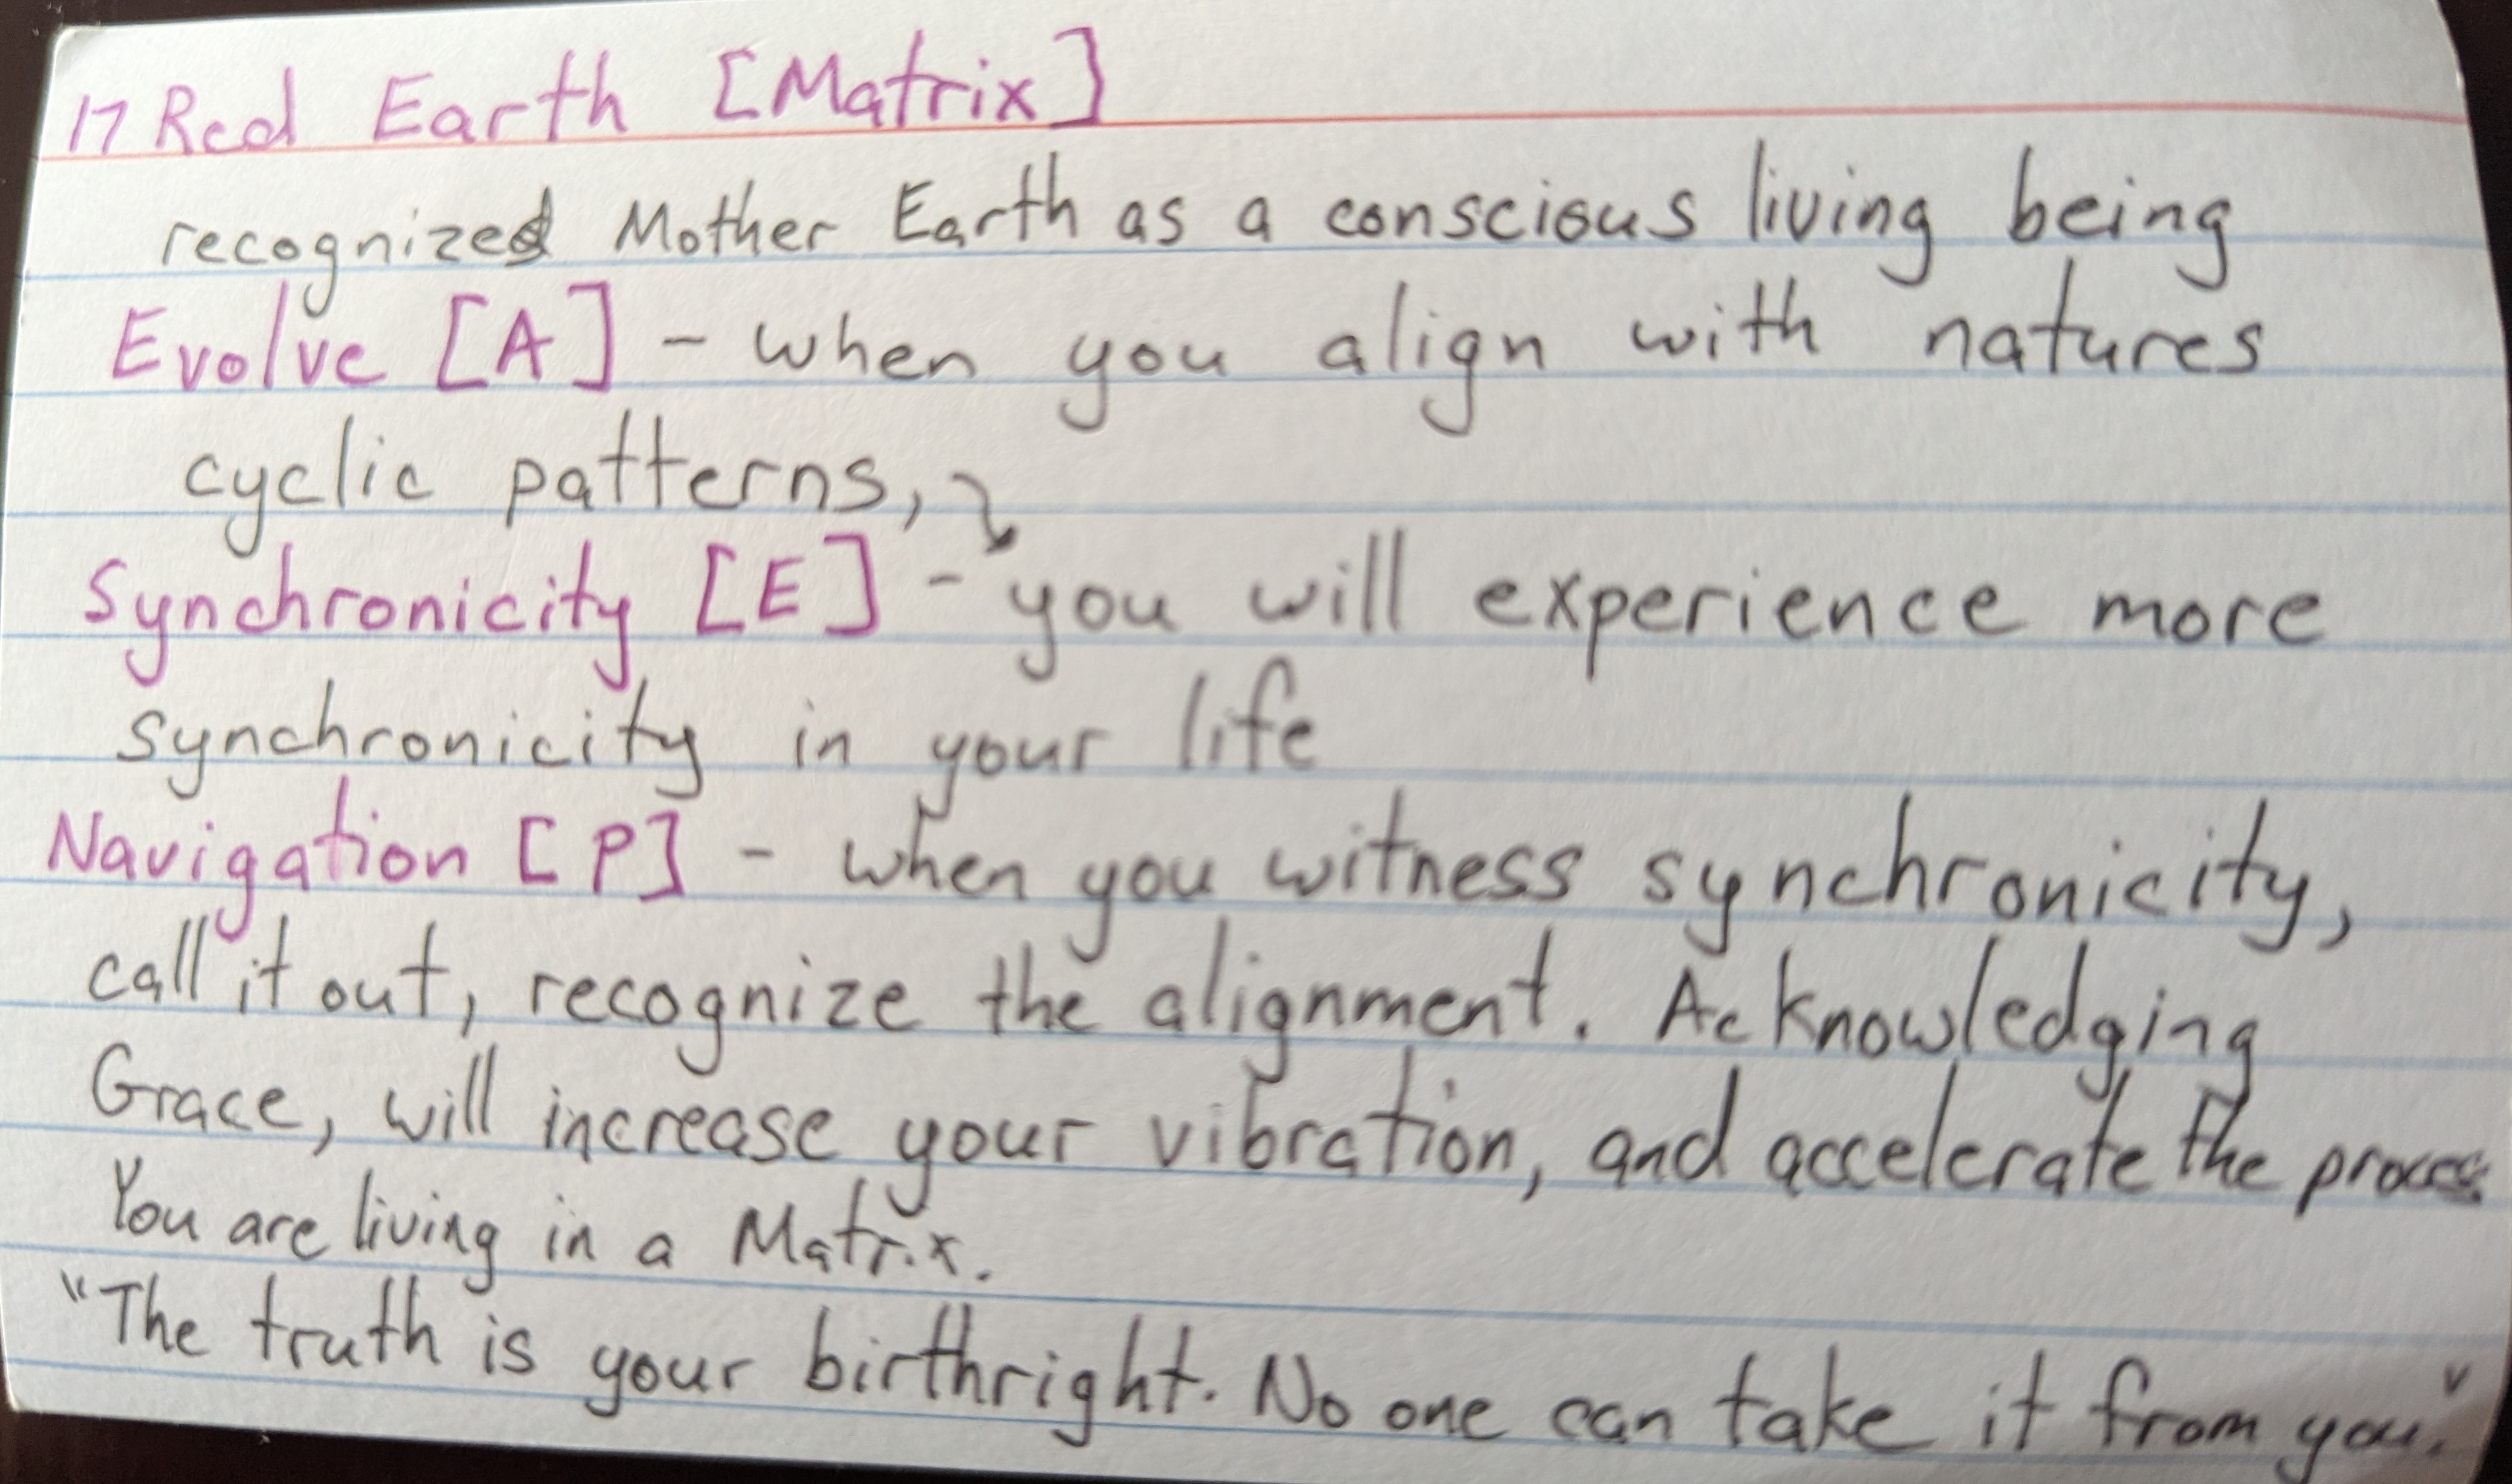 17 Red Earth [Matrix]
recognized Mother Earth as a conscious living being
Evolve [A] - when you align with natures
cyclic patterns,
Synchronicity [E] - you will experience more
synchronicity in your life
Navigation [P] - when you witness synchronicity,
call it out, recognize the alignment. Acknowledging
Grace, will increase your vibration, and accelerate the process
You are living in a Matrix.
"The truth is your birthright. No one can take it from you."